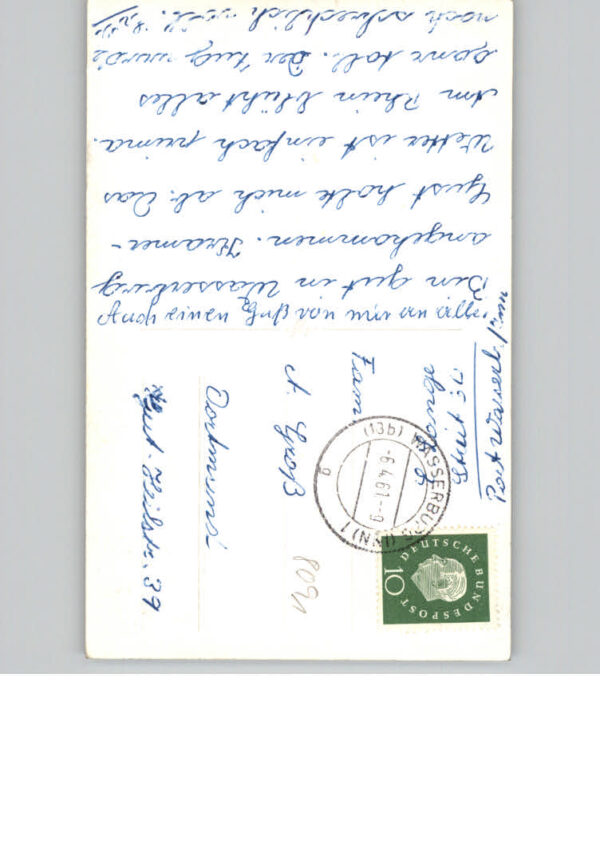 Bin gut in Wasserburg
angekommen. Kramer-
Gust holte mich ab. Das
Wetter ist einfach prima.
Am Rhein blüht alles
ganz toll. Der Zug wurde
noch schrecklich voll.
Auch einen Gruß von mir an alle!
Fam.
A. Groß
Dortmund
Gut-Heil-Str. 37
(13b) WASSERBURG (INN) 1
-6.4.61-9
g
DEUTSCHE BUNDESPOST
10
8091